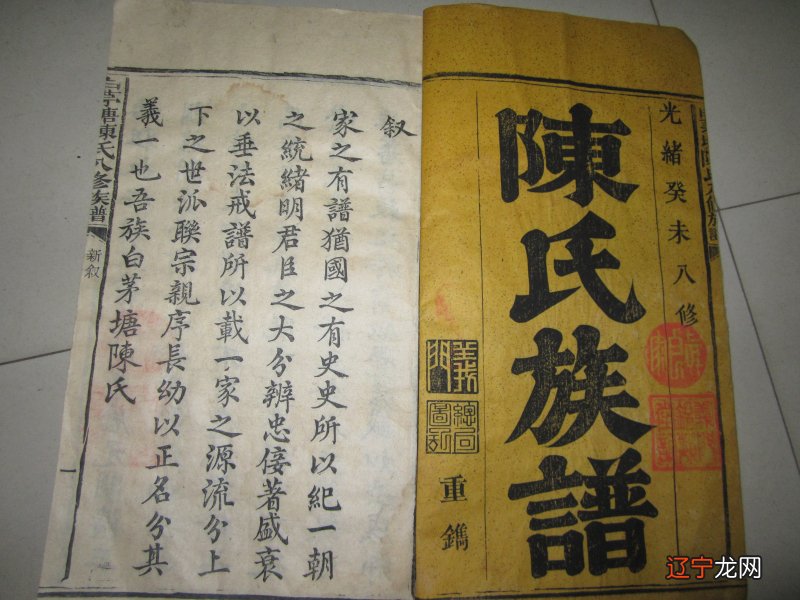 光緒癸未八修
陳氏族譜
義門
總局
圖記
重鐫
叙
家之有譜猶國之有史史所以紀一朝
之統緒明君臣之大分辨忠佞著盛衰
以垂法戒譜所以載一家之源流分上
下之世派聯宗親序長幼以正名分其
義一也吾族白茅塘陳氏
白茅塘陳氏八修族譜
新叙
一
辽宁龙网